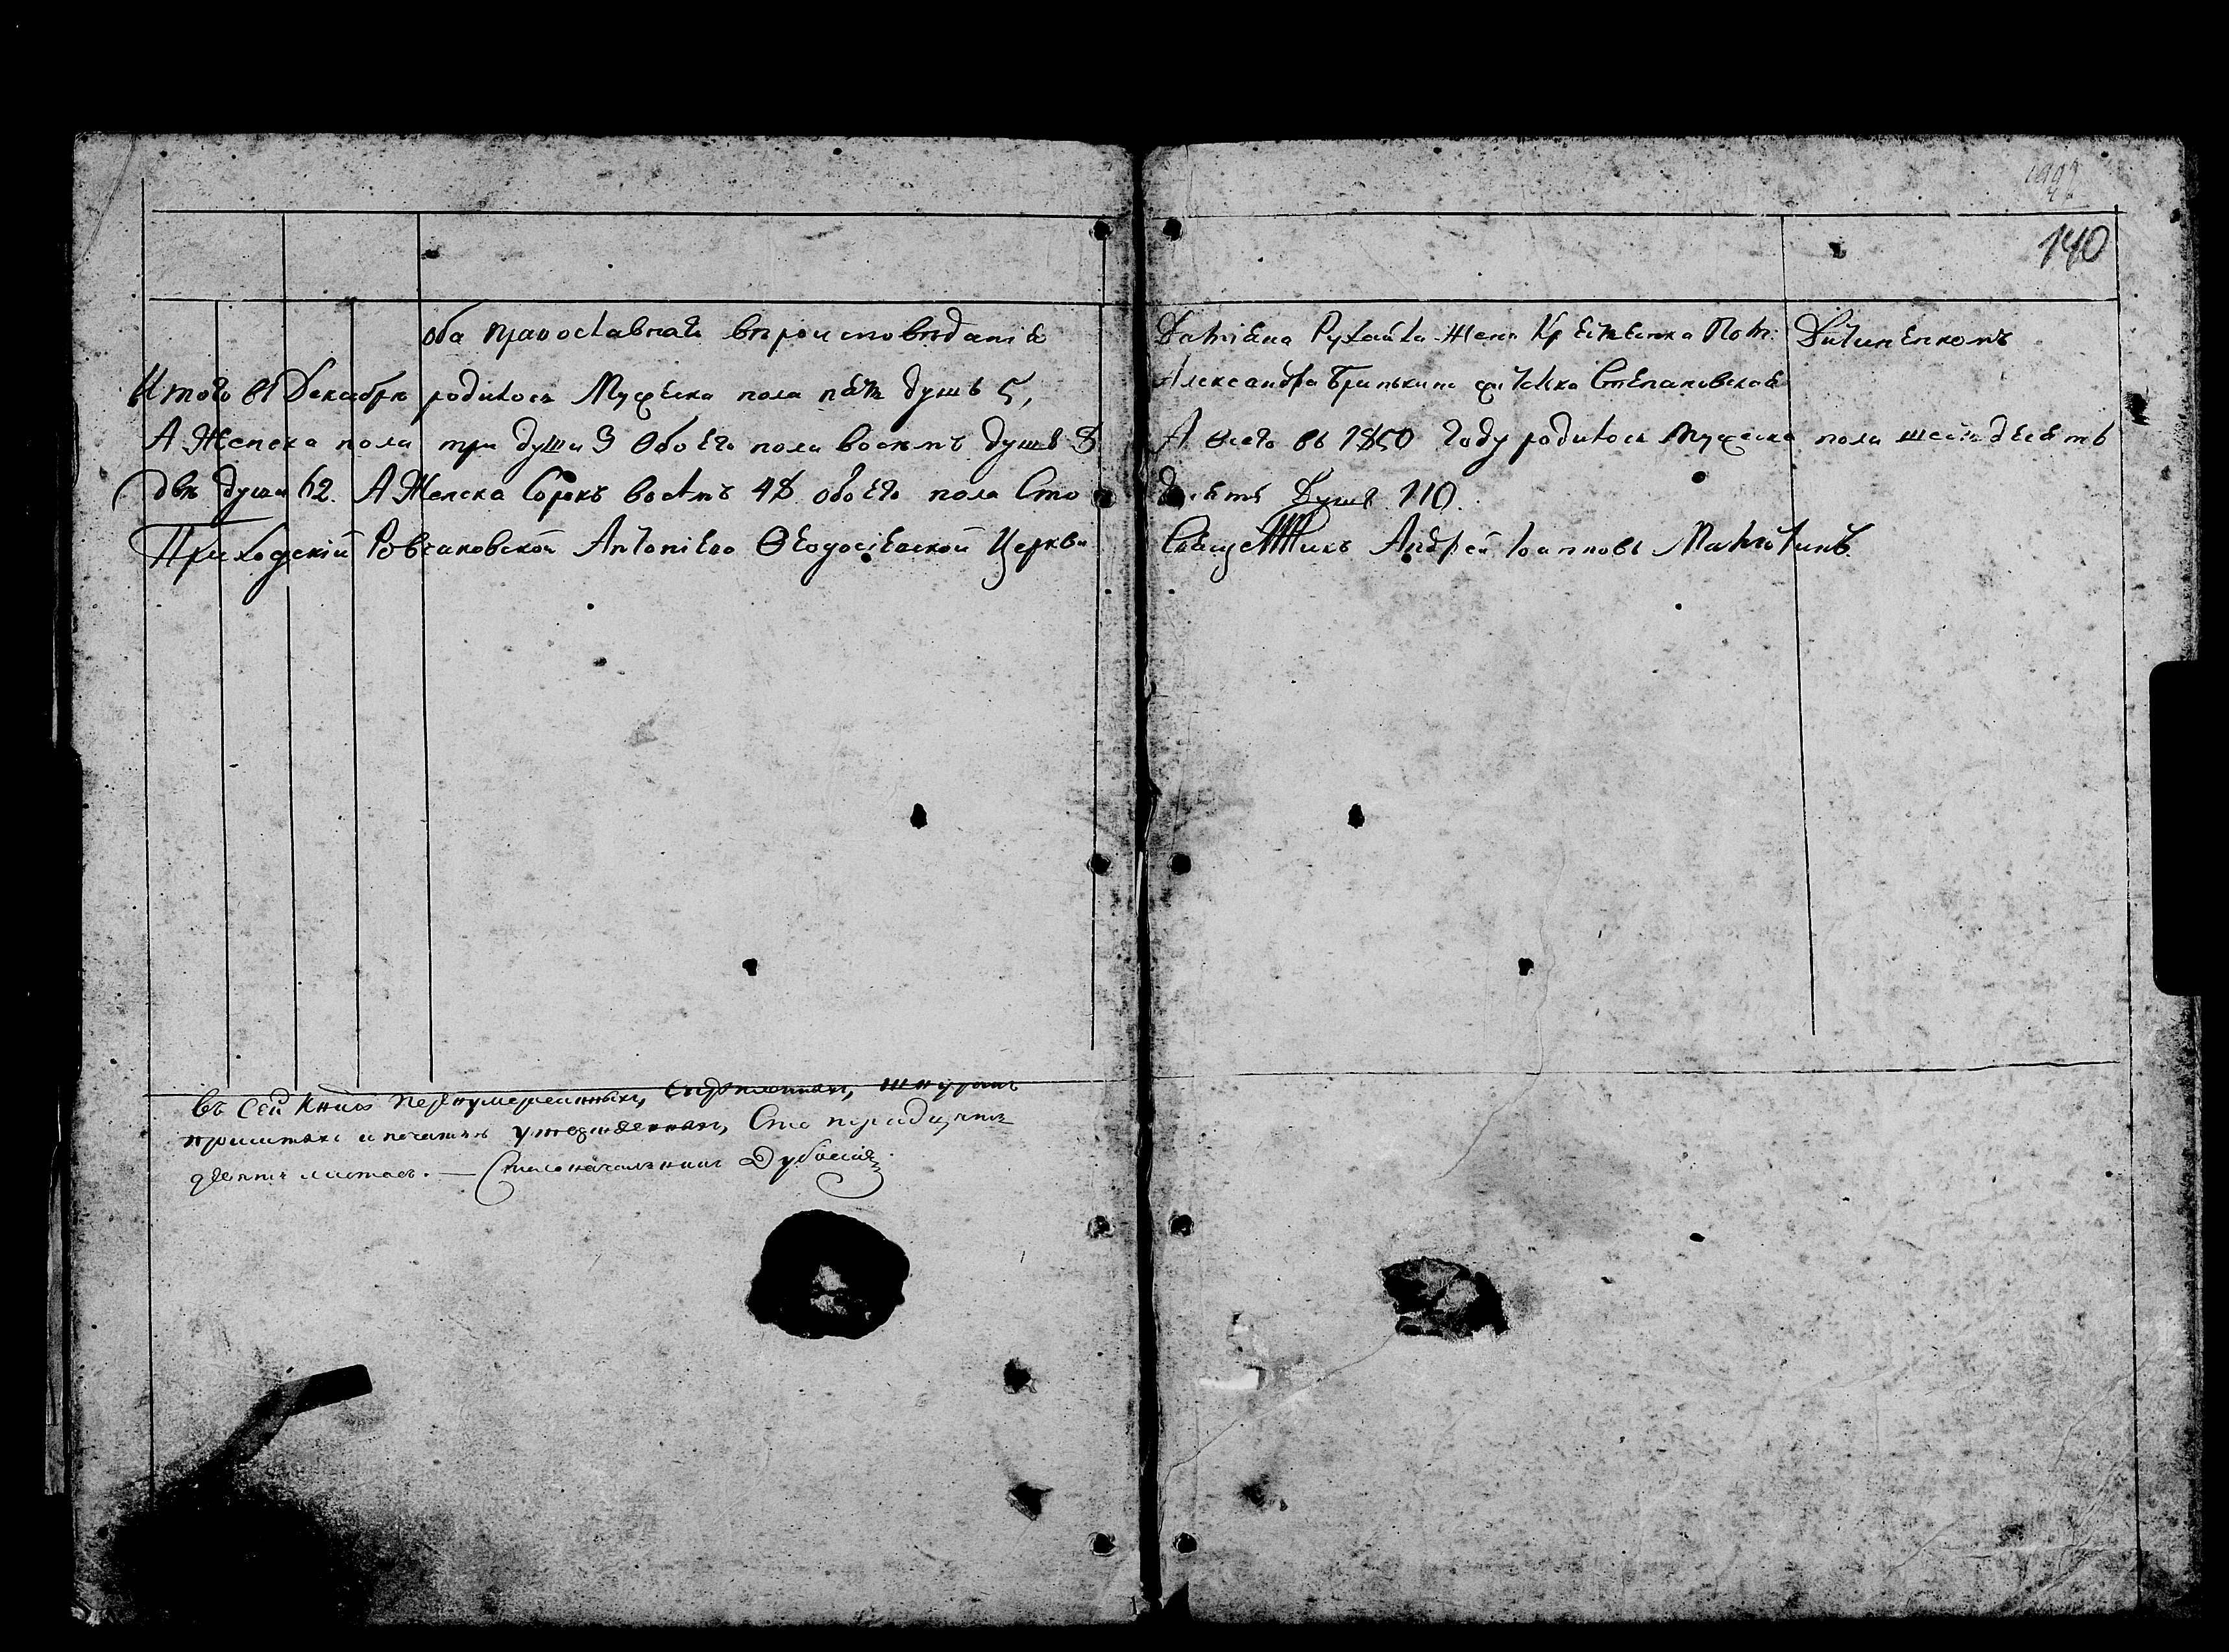 140
оба православнаго вѣроисповѣданія
Итого въ Декабрѣ родилось Мужеска пола пять душъ 5,
А Женска пола три души 3 Обоего пола восемь душъ 8
А всего въ 1850 Году родилось Мужеска пола шестьдесятъ
двѣ души 62. А Женска Сорокъ восемь 48 обоего пола Сто
десять Душъ 110.
Приходскій Ровчаковской Антоніево Ѳеодосіевской Церкви
Священникъ Андрей Іоанновъ
жена Крестьянка Пом:
Александра Степановская
въ сей книгѣ перенумерованныхъ, скрѣпленныхъ, шнуромъ
и печатью утвержденныхъ, Сто тридцать
девять листовъ. — Столоначальникъ